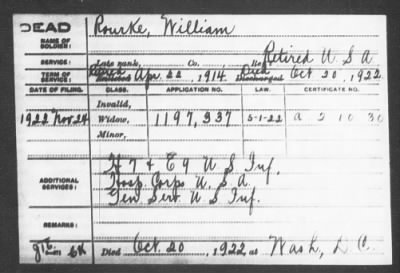 DEAD
NAME OF SOLDIER: Rourke, William
SERVICE: Late rank, Co., Retired U S A
TERM OF SERVICE: Enlisted Apr. 22, 1914, Discharged Oct 20, 1922
DATE OF FILING. CLASS. APPLICATION NO. LAW. CERTIFICATE NO.
Invalid,
1922 Nov 24 Widow, 1197,337 5-1-22 a 2 10 30
Minor,
ADDITIONAL SERVICES: H 7 & E 9 U S Inf.
Hosp Corps U. S A.
Gen Serv U S Inf.
REMARKS:
Died Oct. 20, 1922, at Wash, D C.